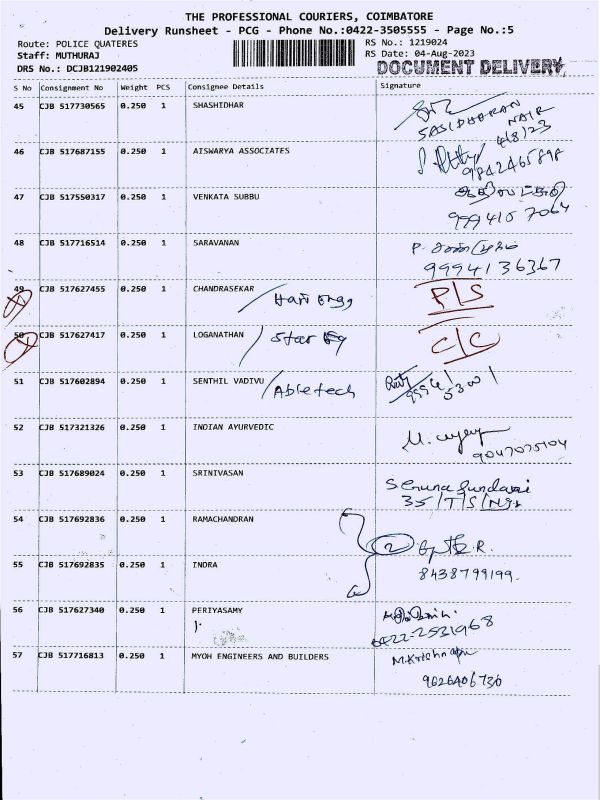 THE PROFESSIONAL COURIERS, COIMBATORE
Delivery Runsheet - PCG - Phone No.:0422-3505555 - Page No.:5
Route: POLICE QUATERES
RS No.: 1219024
Staff: MUTHURAJ
RS Date: 04-Aug-2023
DRS No.: DCJB121902405
DOCUMENT DELIVERY
S No Consignment No Weight PCS Consignee Details Signature
45 CJB 517730565 0.250 1 SHASHIDHAR
SASIDHARAN
NAIR
4/8/23
46 CJB 517687155 0.250 1 AISWARYA ASSOCIATES
9842465898
47 CJB 517550317 0.250 1 VENKATA SUBBU
9994107064
48 CJB 517716514 0.250 1 SARAVANAN
9994136367
49 CJB 517627455 0.250 1 CHANDRASEKAR / Hari Engg P/S
50 CJB 517627417 0.250 1 LOGANATHAN / Star C/C
51 CJB 517602894 0.250 1 SENTHIL VADIVU / Abletech
52 CJB 517321326 0.250 1 INDIAN AYURVEDIC
9047075104
53 CJB 517689024 0.250 1 SRINIVASAN
35/T/S/Ngr
54 CJB 517692836 0.250 1 RAMACHANDRAN
2
55 CJB 517692835 0.250 1 INDRA
8438799199
56 CJB 517627340 0.250 1 PERIYASAMY
0422-2531968
57 CJB 517716813 0.250 1 MYOH ENGINEERS AND BUILDERS
9626406736